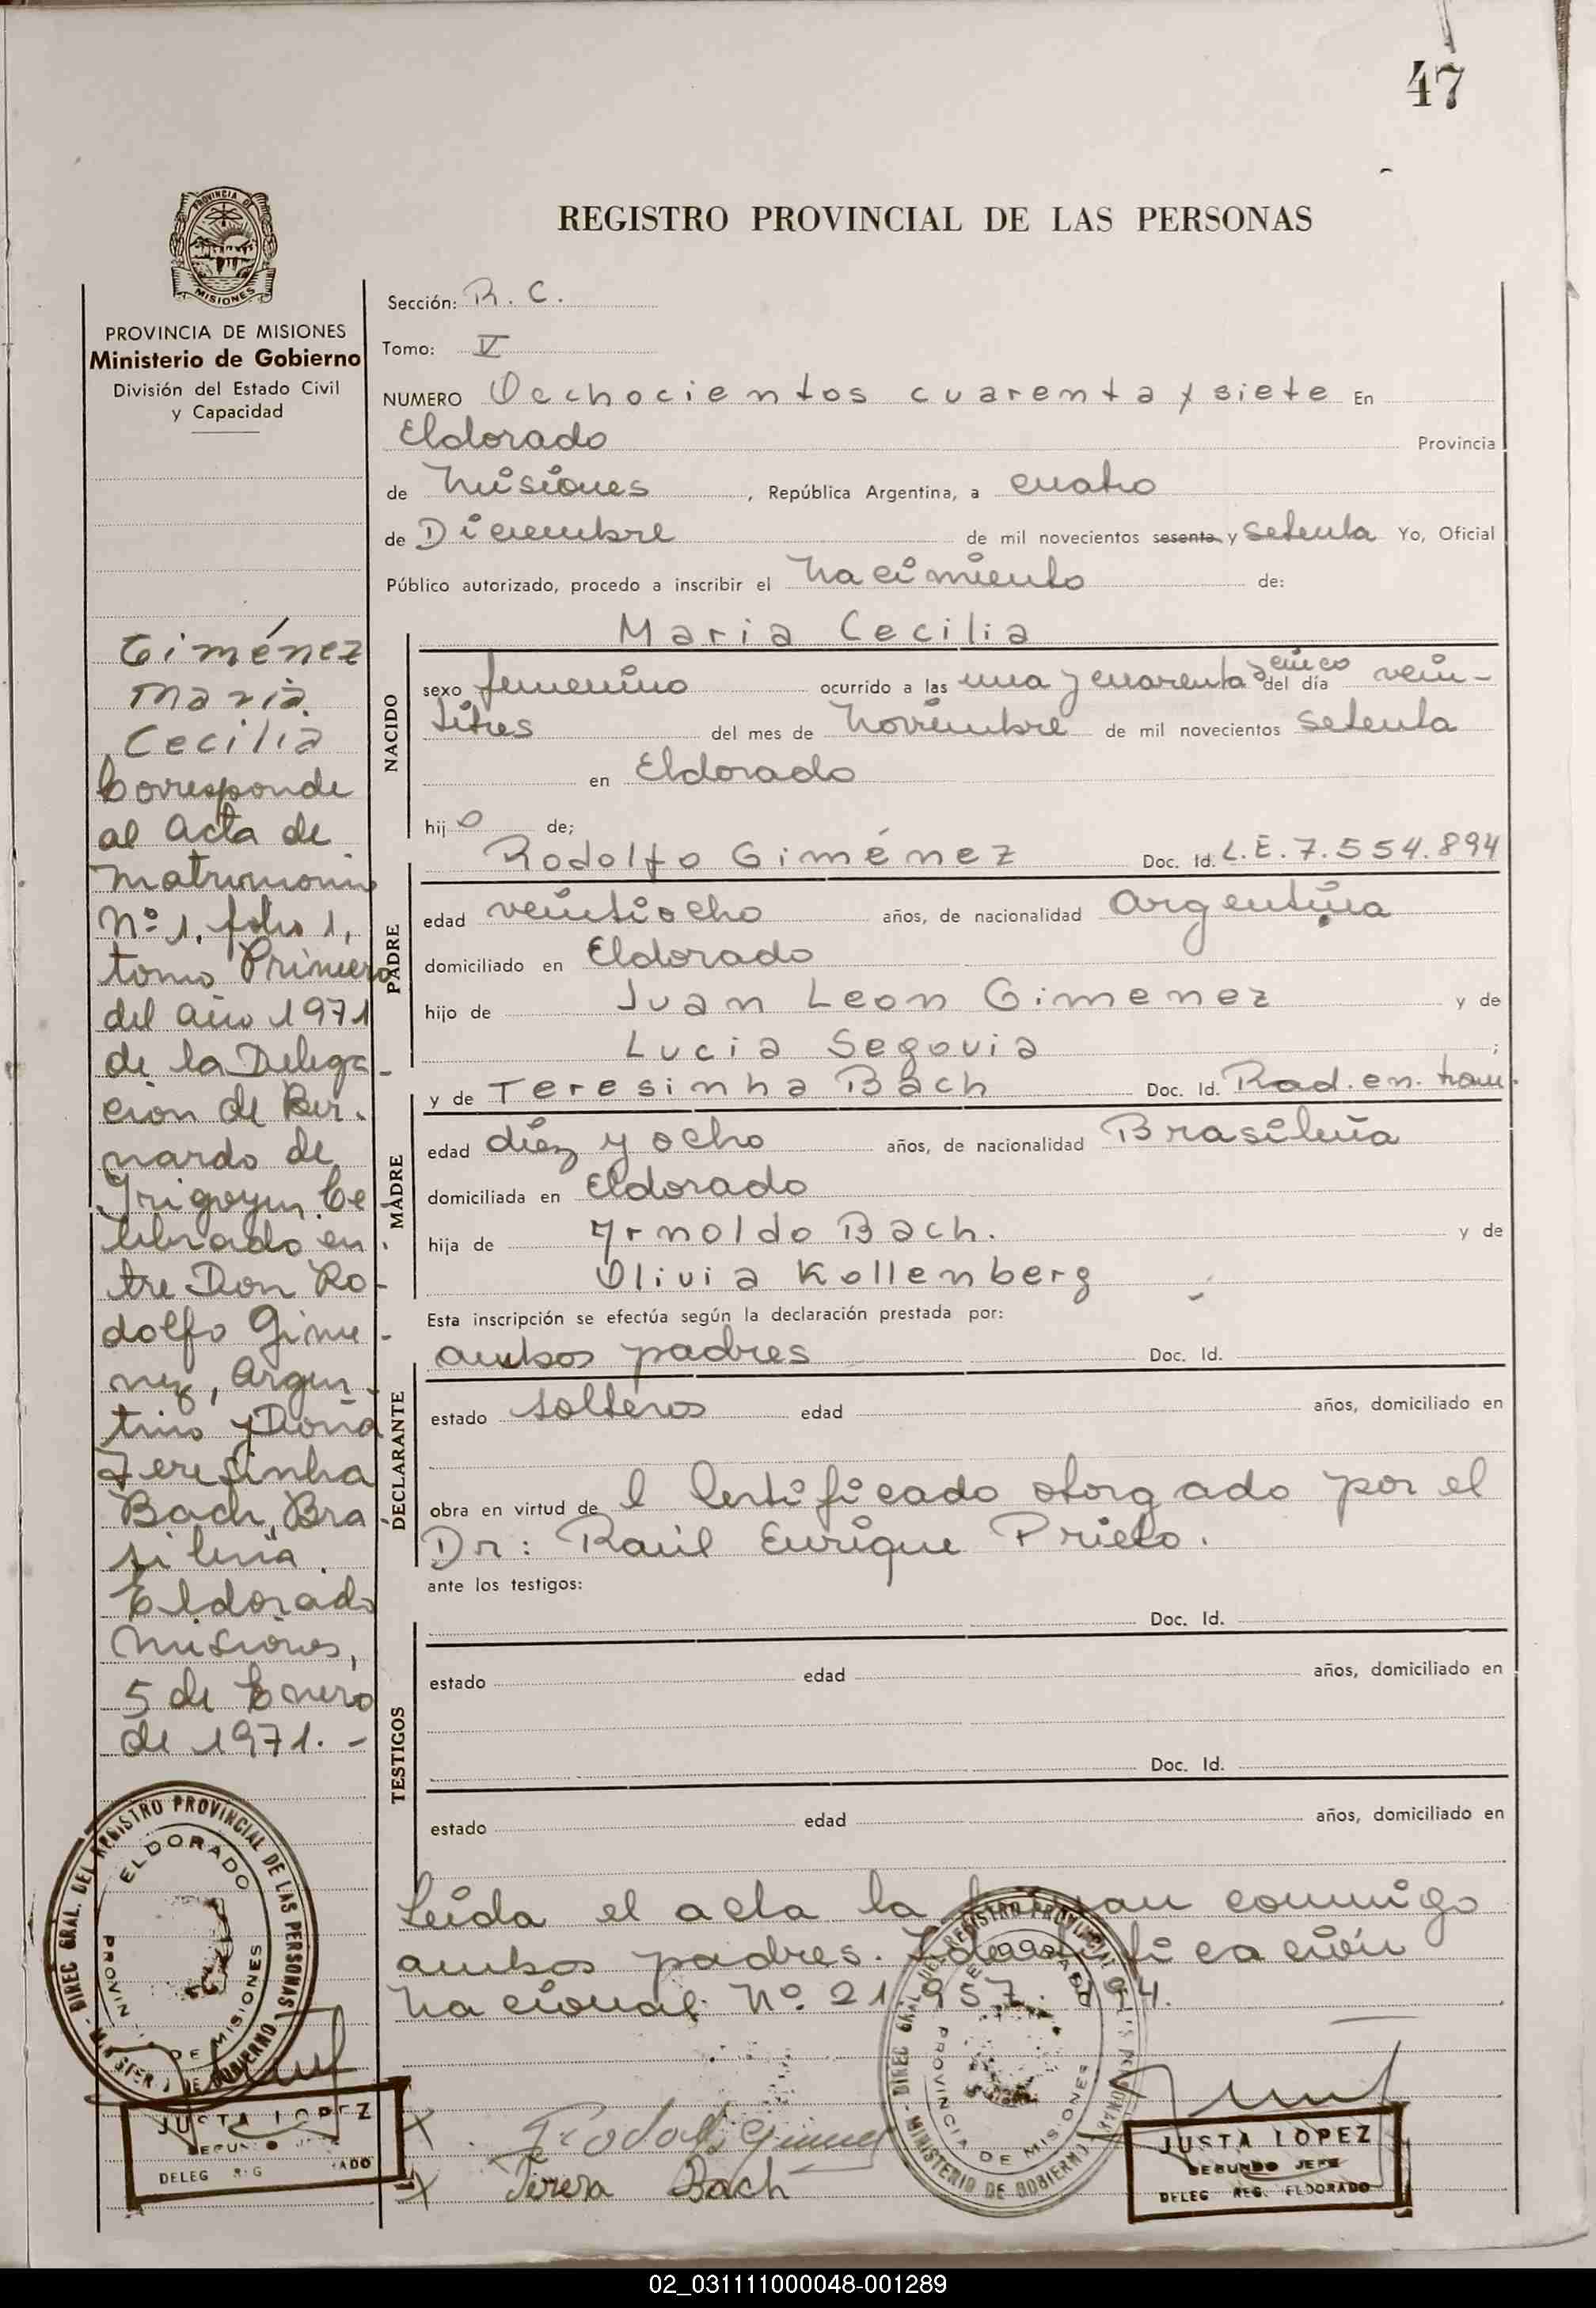 47
REGISTRO PROVINCIAL DE LAS PERSONAS
PROVINCIA DE
MISIONES
PROVINCIA DE MISIONES
Ministerio de Gobierno
División del Estado Civil
y Capacidad
Giménez
Maria
Cecilia
Corresponde
al Acta de
Matrimonio
Nº 1, folio 1,
tomo Primero
del año 1971
de la Delega-
cion de Ber-
nardo de
Yrigoyen Ce
lebrado en-
tre Don Ro-
dolfo Gime-
nez, Argen-
tino y Doña
Teresinha
Bach, Bra
sileña.
Eldorado
Misiones,
5 de Enero
de 1971.-
DIREC GRAL. DEL REGISTRO PROVINCIAL DE LAS PERSONAS
ELDORADO
PROVIN DE MISIONES
JUSTA LOPEZ
SEGUNDO JEFE
DELEG
Sección: R. C.
Tomo: V
NUMERO Ochocientos cuarenta y siete En
Eldorado Provincia
de Misiones, República Argentina, a cuatro
de Diciembre de mil novecientos sesenta y setenta Yo, Oficial
Público autorizado, procedo a inscribir el nacimiento de:
NACIDO
Maria Cecilia
sexo femenino ocurrido a las una y cuarenta y cinco del día vein-
titres del mes de Noviembre de mil novecientos setenta
en Eldorado
hij o de;
PADRE
Rodolfo Giménez Doc. Id. L.E. 7.554.894
edad veintiocho años, de nacionalidad Argentina
domiciliado en Eldorado
hijo de Juan Leon Gimenez y de
Lucia Segovia ;
MADRE
y de Teresinha Bach Doc. Id. Rad. en. tram.
edad diez y ocho años, de nacionalidad Brasileña
domiciliada en Eldorado
hija de Yrnoldo Bach. y de
Olivia Kollenberg
Esta inscripción se efectúa según la declaración prestada por:
DECLARANTE
ambos padres Doc. Id.
estado solteros edad años, domiciliado en
obra en virtud de l Certificado otorgado por el
Dr: Raúl Enrique Prieto.
ante los testigos:
TESTIGOS
Doc. Id.
estado edad años, domiciliado en
Doc. Id.
estado edad años, domiciliado en
Leida el acta la firman conmigo
ambos padres. Identificación
Nacional Nº 21.957.
DIREC GRAL. DEL REGISTRO PROVINCIAL
PROVINCIA DE MISIONES
MINISTERIO DE GOBIERNO
Teresa Bach
JUSTA LOPEZ
SEGUNDO JEFE
DELEG REG. ELDORADO
02_031111000048-001289